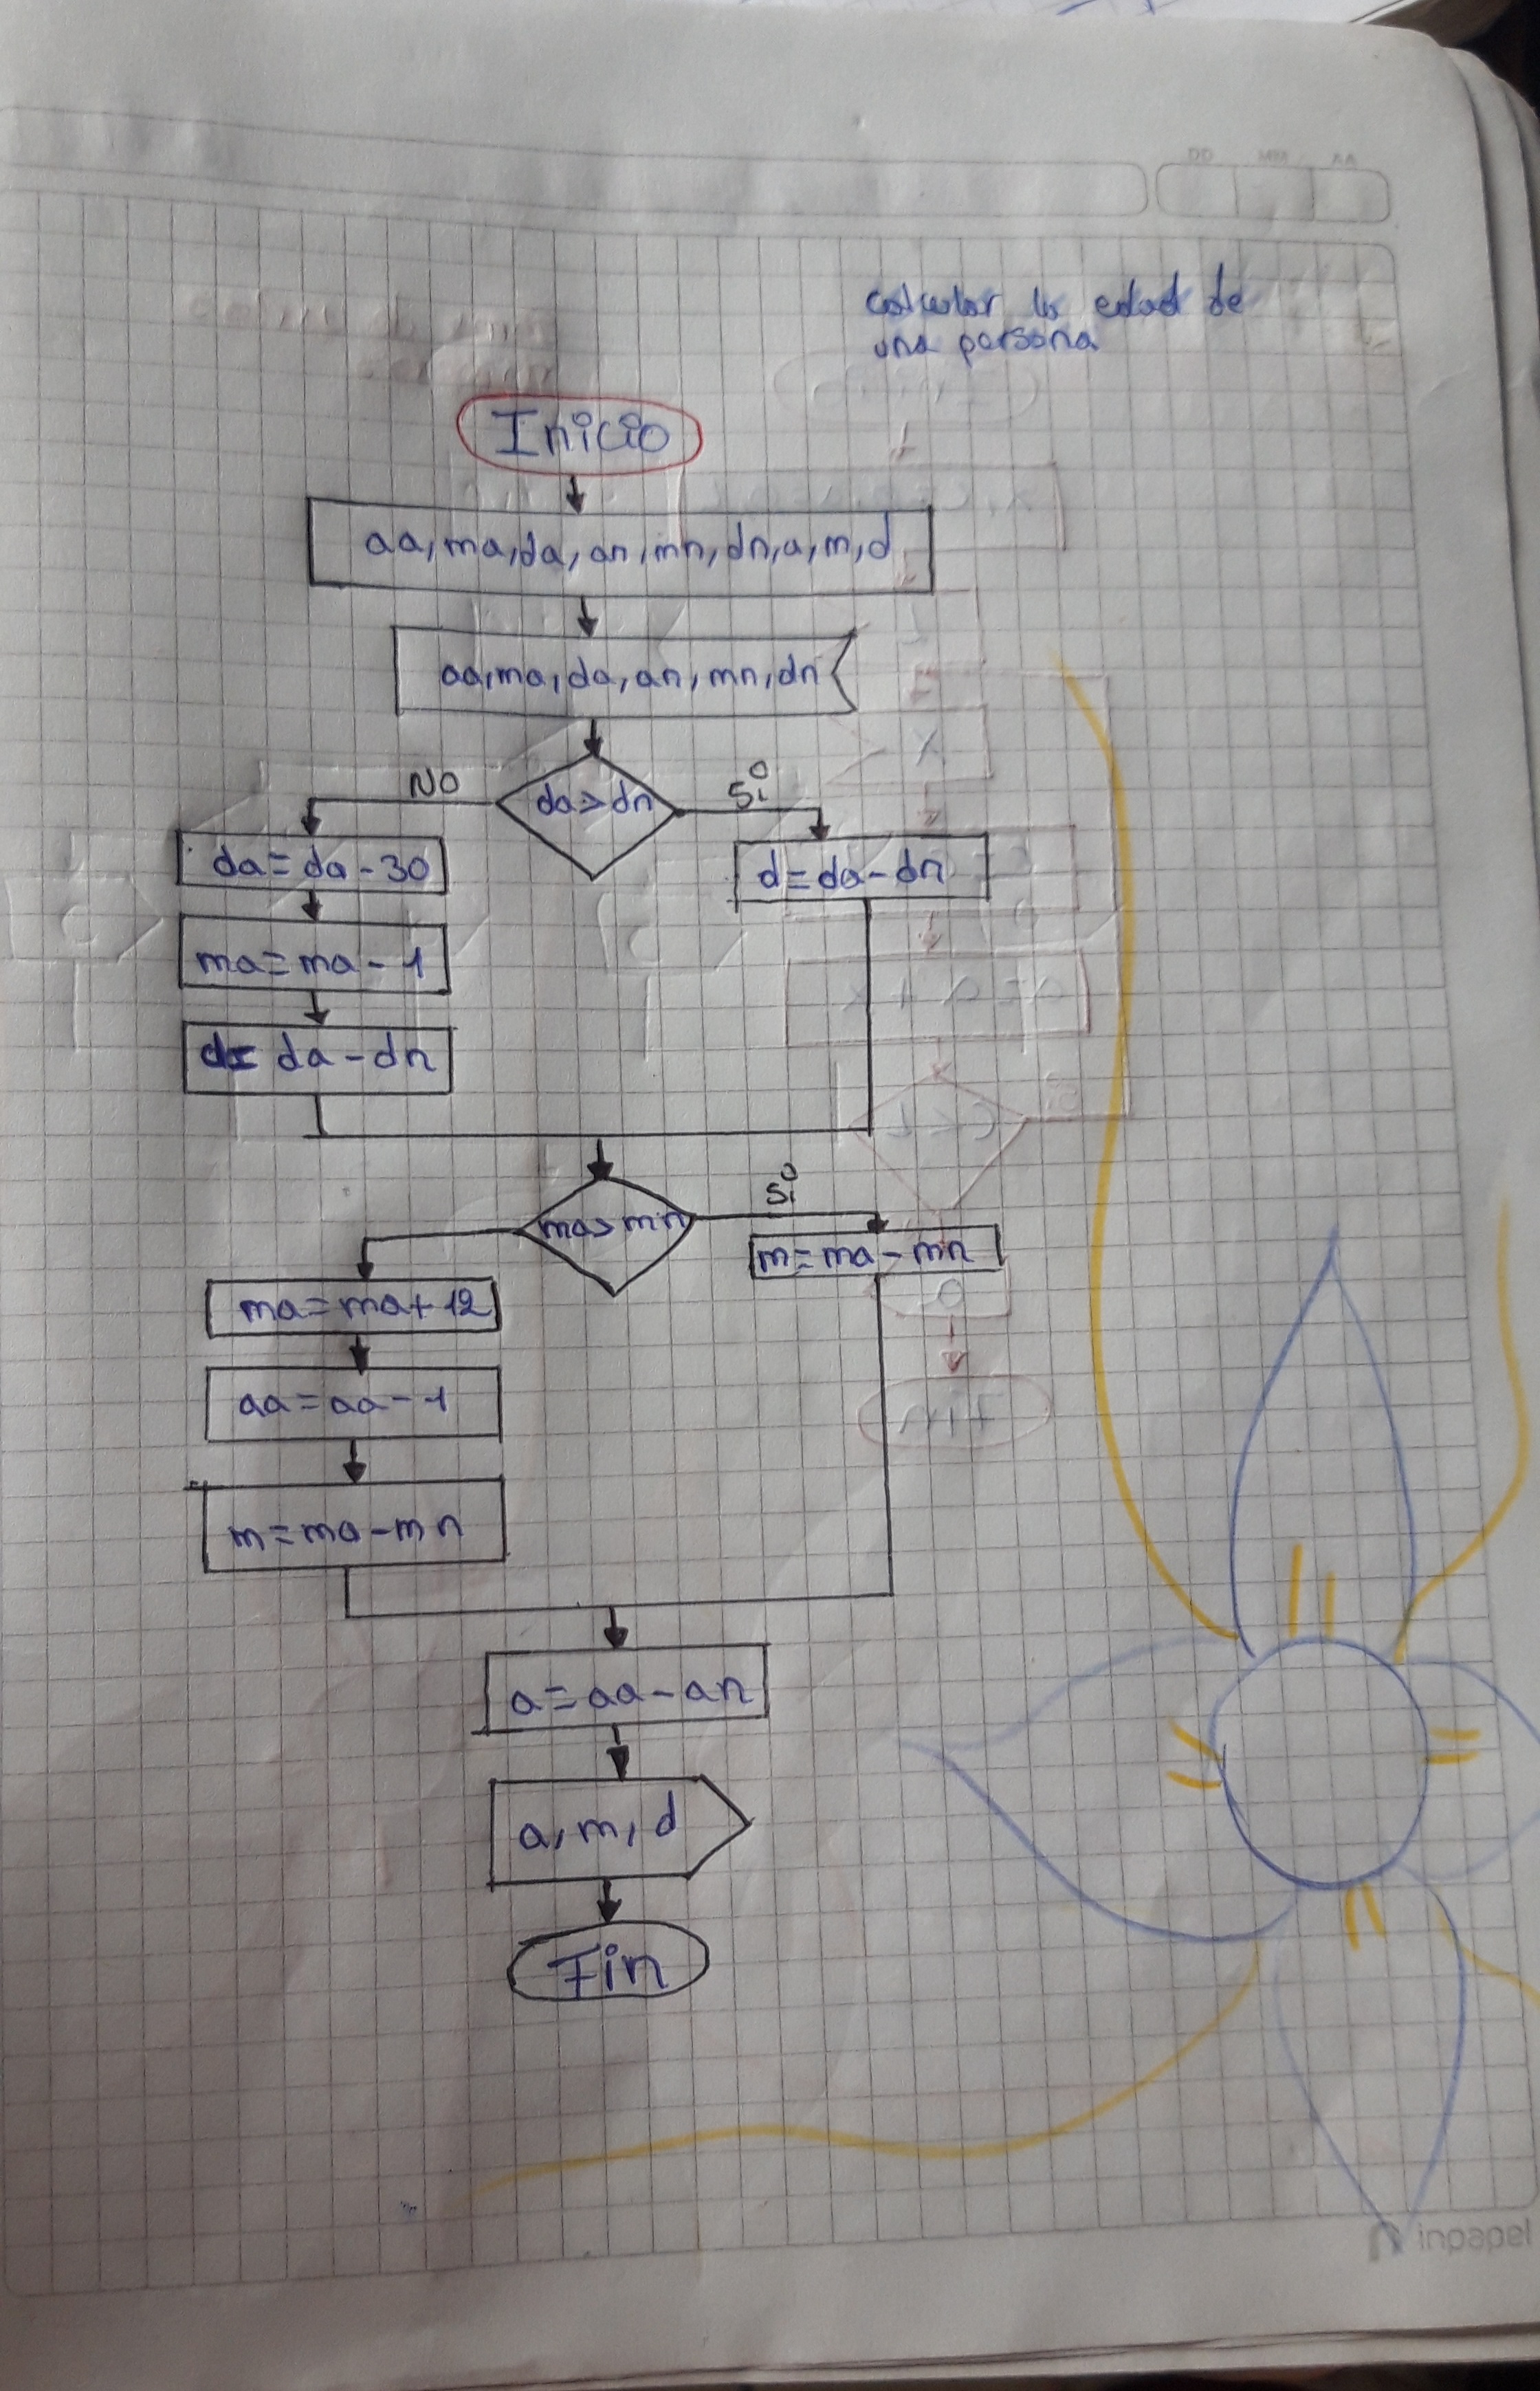 DD MM AA
calcular la edad de
una persona
Inicio
aa, ma, da, an, mn, dn, a, m, d
aa, ma, da, an, mn, dn
NO
da > dn
Si
da = da - 30
d = da - dn
ma = ma - 1
d = da - dn
ma > mn
Si
m = ma - mn
ma = ma + 12
aa = aa - 1
m = ma - mn
a = aa - an
a, m, d
Fin
inpapel